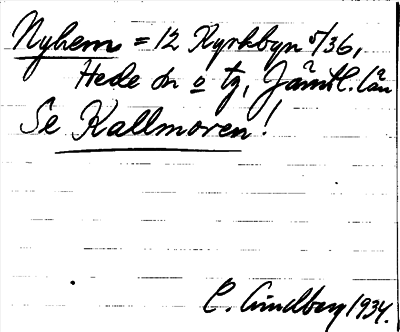 Nyhem = 12 Kyrkbyn 5/36,
Hede sn o tg, Jämtl. län
Se Kallmoren!
C. Lindberg 1934.